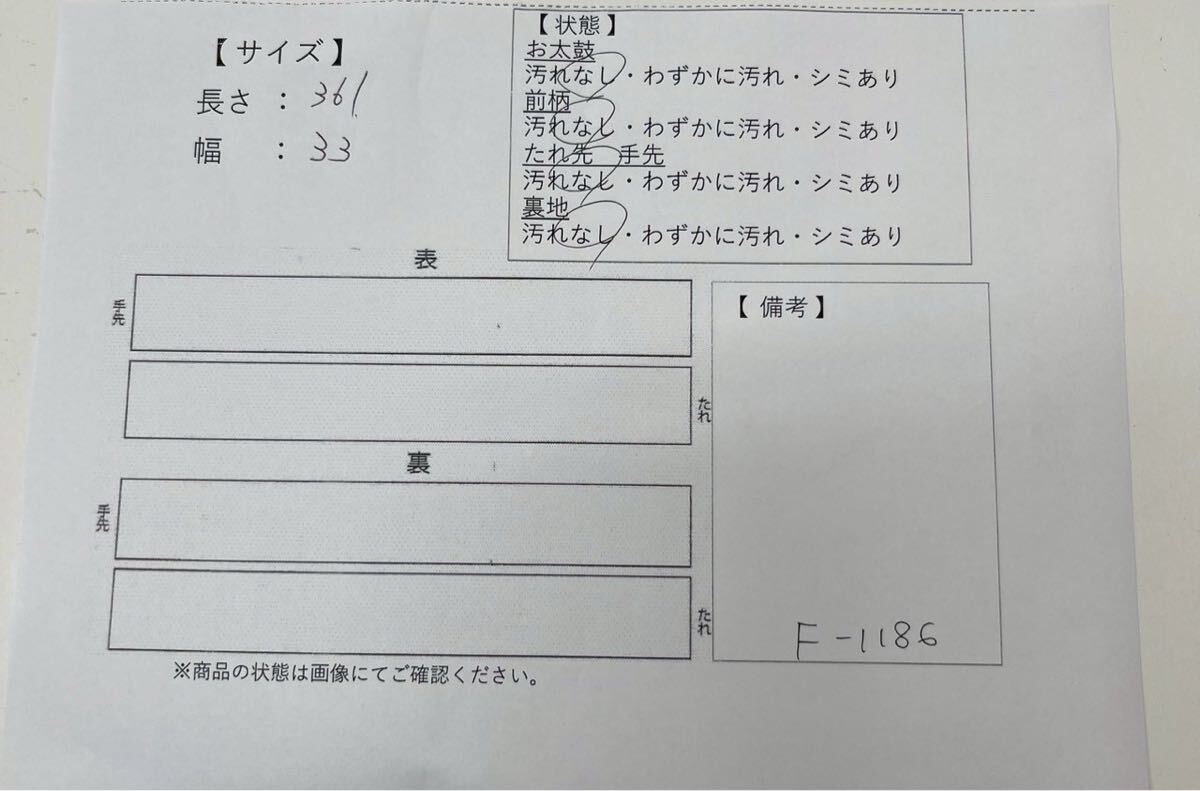 【 サイズ 】
長さ : 361
幅 : 33
【 状態 】
お太鼓
汚れなし・わずかに汚れ・シミあり
前柄
汚れなし・わずかに汚れ・シミあり
たれ先 手先
汚れなし・わずかに汚れ・シミあり
裏地
汚れなし・わずかに汚れ・シミあり
表
手先
たれ
裏
手先
たれ
※商品の状態は画像にてご確認ください。
【 備考 】
F-1186